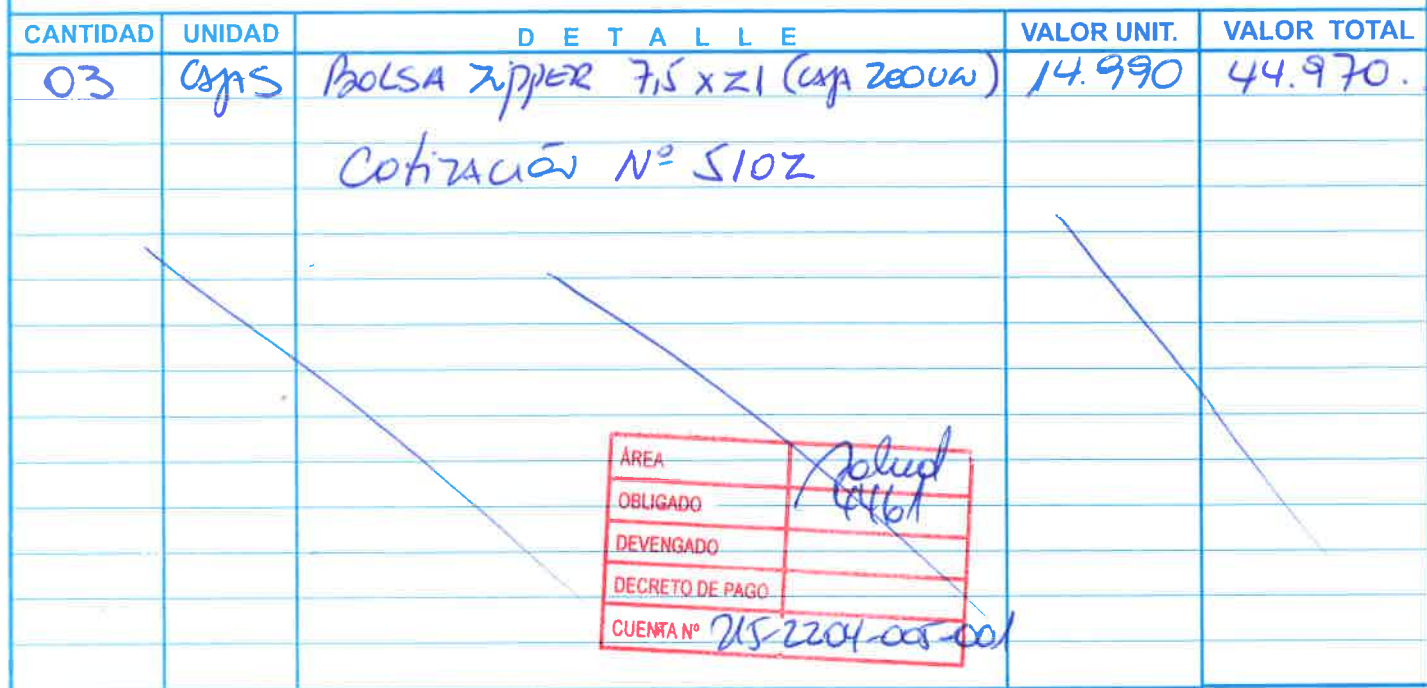 CANTIDAD UNIDAD DETALLE VALOR UNIT. VALOR TOTAL
03 CAJAS BOLSA ZIPPER 7,5 x 21 (CAJA 200UN) 14.990 44.970.
Cotización Nº 5102
ÁREA Salud
OBLIGADO 4461
DEVENGADO
DECRETO DE PAGO
CUENTA Nº 215-2204-005-001